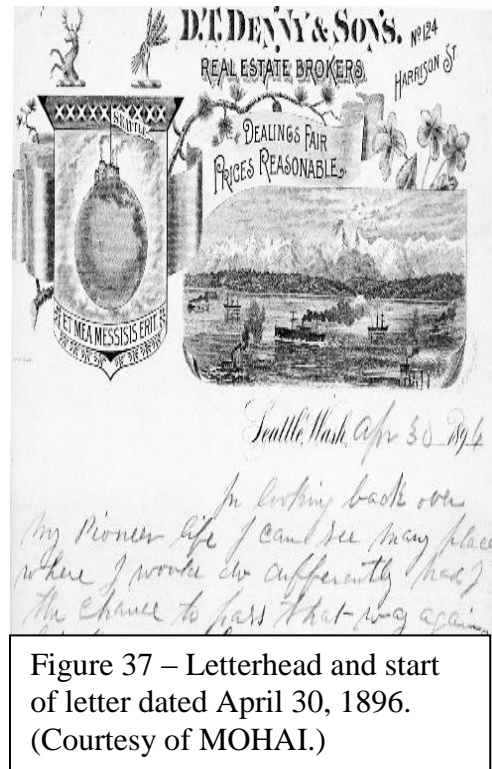 D.T. DENNY & SONS.
No 124
HARRISON ST.
REAL ESTATE BROKERS.
DEALINGS FAIR
PRICES REASONABLE.
SEATTLE
ET MEA MESSIS ERIT
Seattle, Wash, Apr 30 1896
In looking back over
my Pioneer life I can see many place
where I would do differently had I
the chance to pass that way again
Figure 37 – Letterhead and start
of letter dated April 30, 1896.
(Courtesy of MOHAI.)